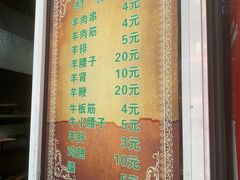 羊肉串 4元
羊肉筋 4元
羊排 5元
羊腰子 20元
羊肾 10元
羊鞭 20元
牛板筋 4元
牛小腰子 5元
羊肝 3元
鸡翅 10元
5元